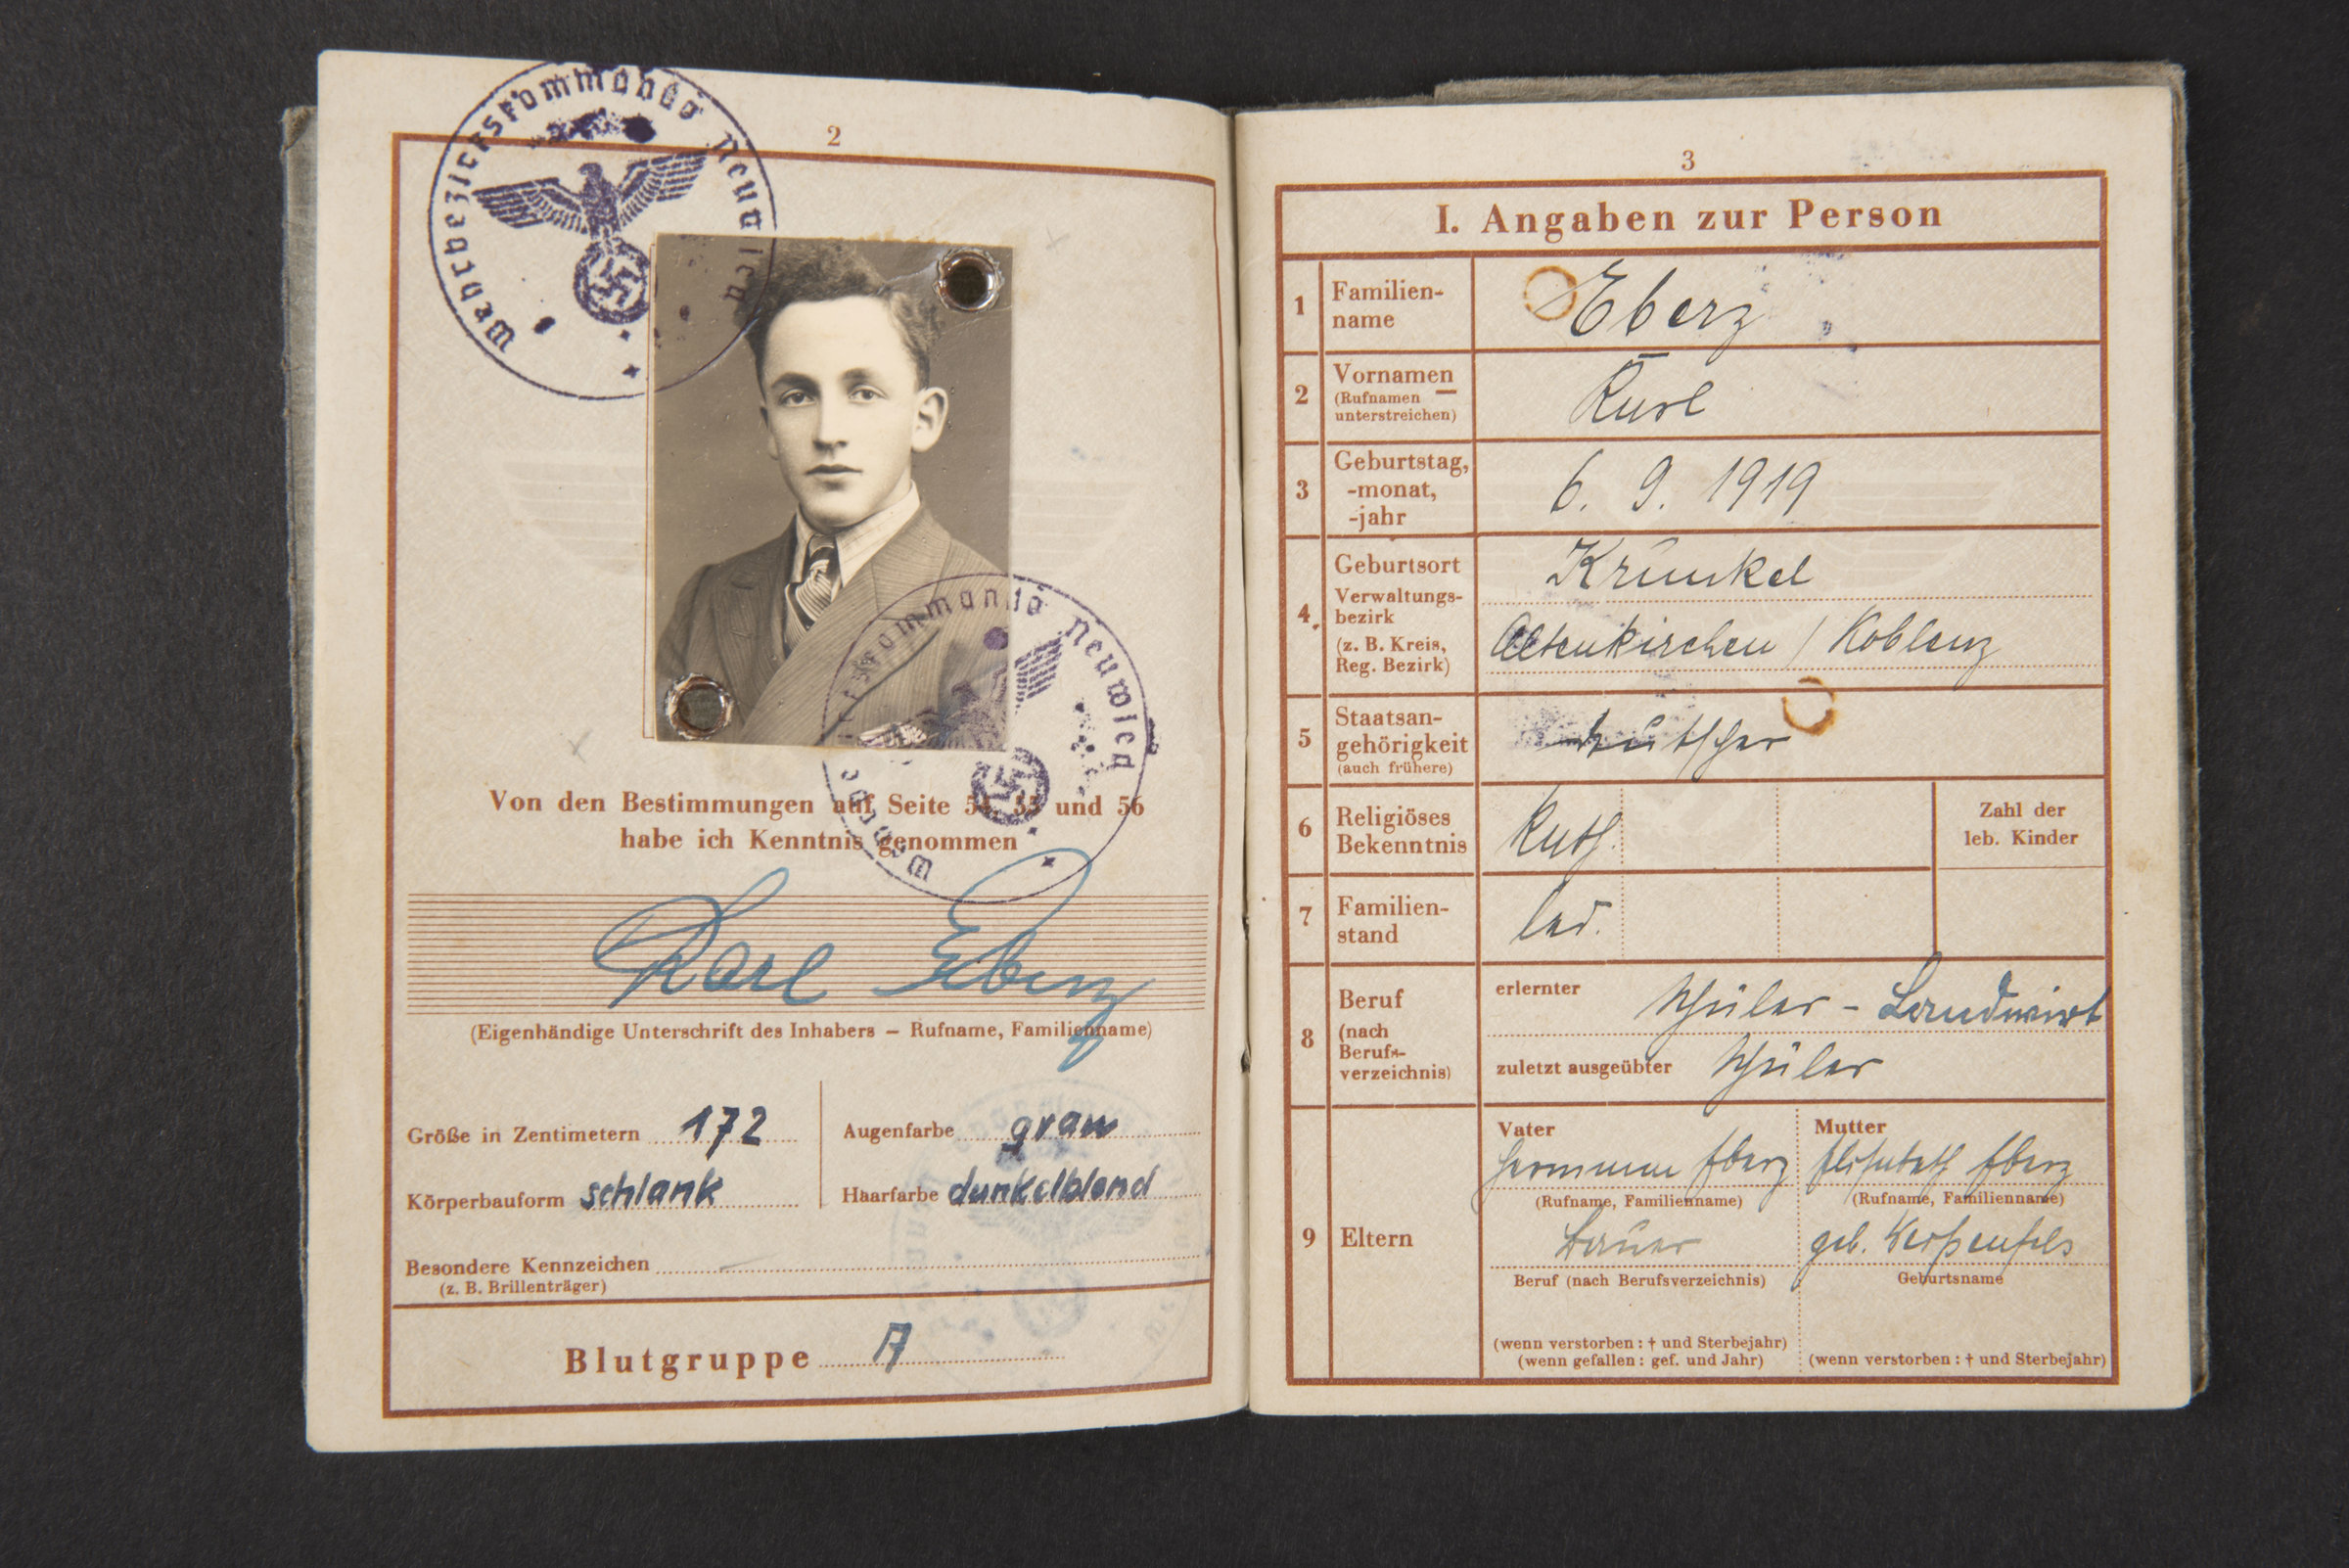 Wehrbezirkskommando Neuwied
2
Wehrbezirkskommando Neuwied
Von den Bestimmungen auf Seite 54, 55 und 56
habe ich Kenntnis genommen
Karl Eberz
(Eigenhändige Unterschrift des Inhabers — Rufname, Familienname)
Größe in Zentimetern 172
Augenfarbe grau
Körperbauform schlank
Haarfarbe dunkelblond
Besondere Kennzeichen —
(z. B. Brillenträger)
Blutgruppe A
3
I. Angaben zur Person
1 Familien-
name
Eberz
2 Vornamen
(Rufnamen
unterstreichen)
Karl
3 Geburtstag,
-monat,
-jahr
6. 9. 1919
4 Geburtsort
Verwaltungs-
bezirk
(z. B. Kreis,
Reg. Bezirk)
Krunkel
Altenkirchen / Koblenz
5 Staatsan-
gehörigkeit
(auch frühere)
deutscher
6 Religiöses
Bekenntnis
Kath.
Zahl der
leb. Kinder
7 Familien-
stand
led.
8 Beruf
(nach
Berufs-
verzeichnis)
erlernter Schüler - Landwirt
zuletzt ausgeübter Schüler
9 Eltern
Vater
Hermann Eberz
(Rufname, Familienname)
Bauer
Beruf (nach Berufsverzeichnis)
(wenn verstorben: † und Sterbejahr)
(wenn gefallen: gef. und Jahr)
Mutter
Elisabeth Eberz
(Rufname, Familienname)
geb.
Geburtsname
(wenn verstorben: † und Sterbejahr)